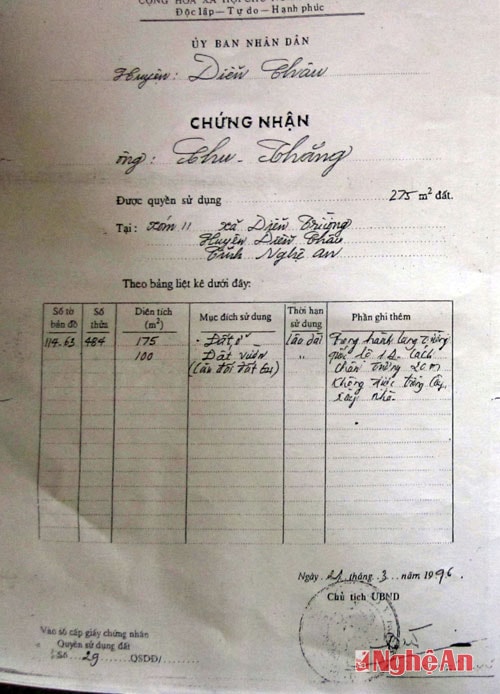 CỘNG HÒA XÃ HỘI CHỦ
Độc lập — Tự do — Hạnh phúc
ỦY BAN NHÂN DÂN
Huyện: Diễn Châu
CHỨNG NHẬN
ông: Thu - Thắng
Được quyền sử dụng 275 m² đất.
Tại: Xóm 11 Xã Diễn Trường
Huyện Diễn Châu
Tỉnh Nghệ An
Theo bảng liệt kê dưới đây:
Số tờ bản đồ Số thửa Diện tích (m²) Mục đích sử dụng Thời hạn sử dụng Phần ghi thêm
114-63 484 175 Đất ở Lâu dài Trong hành lang đường
100 Đất vườn " quốc lộ 1A. Cách
chân đường 20m
không được trồng cây,
xây nhà.
Ngày 21 tháng 3 năm 1996.
Chủ tịch UBND
Vào sổ cấp giấy chứng nhận
Quyền sử dụng đất
Số 29 QSDĐ/
Nghệ An